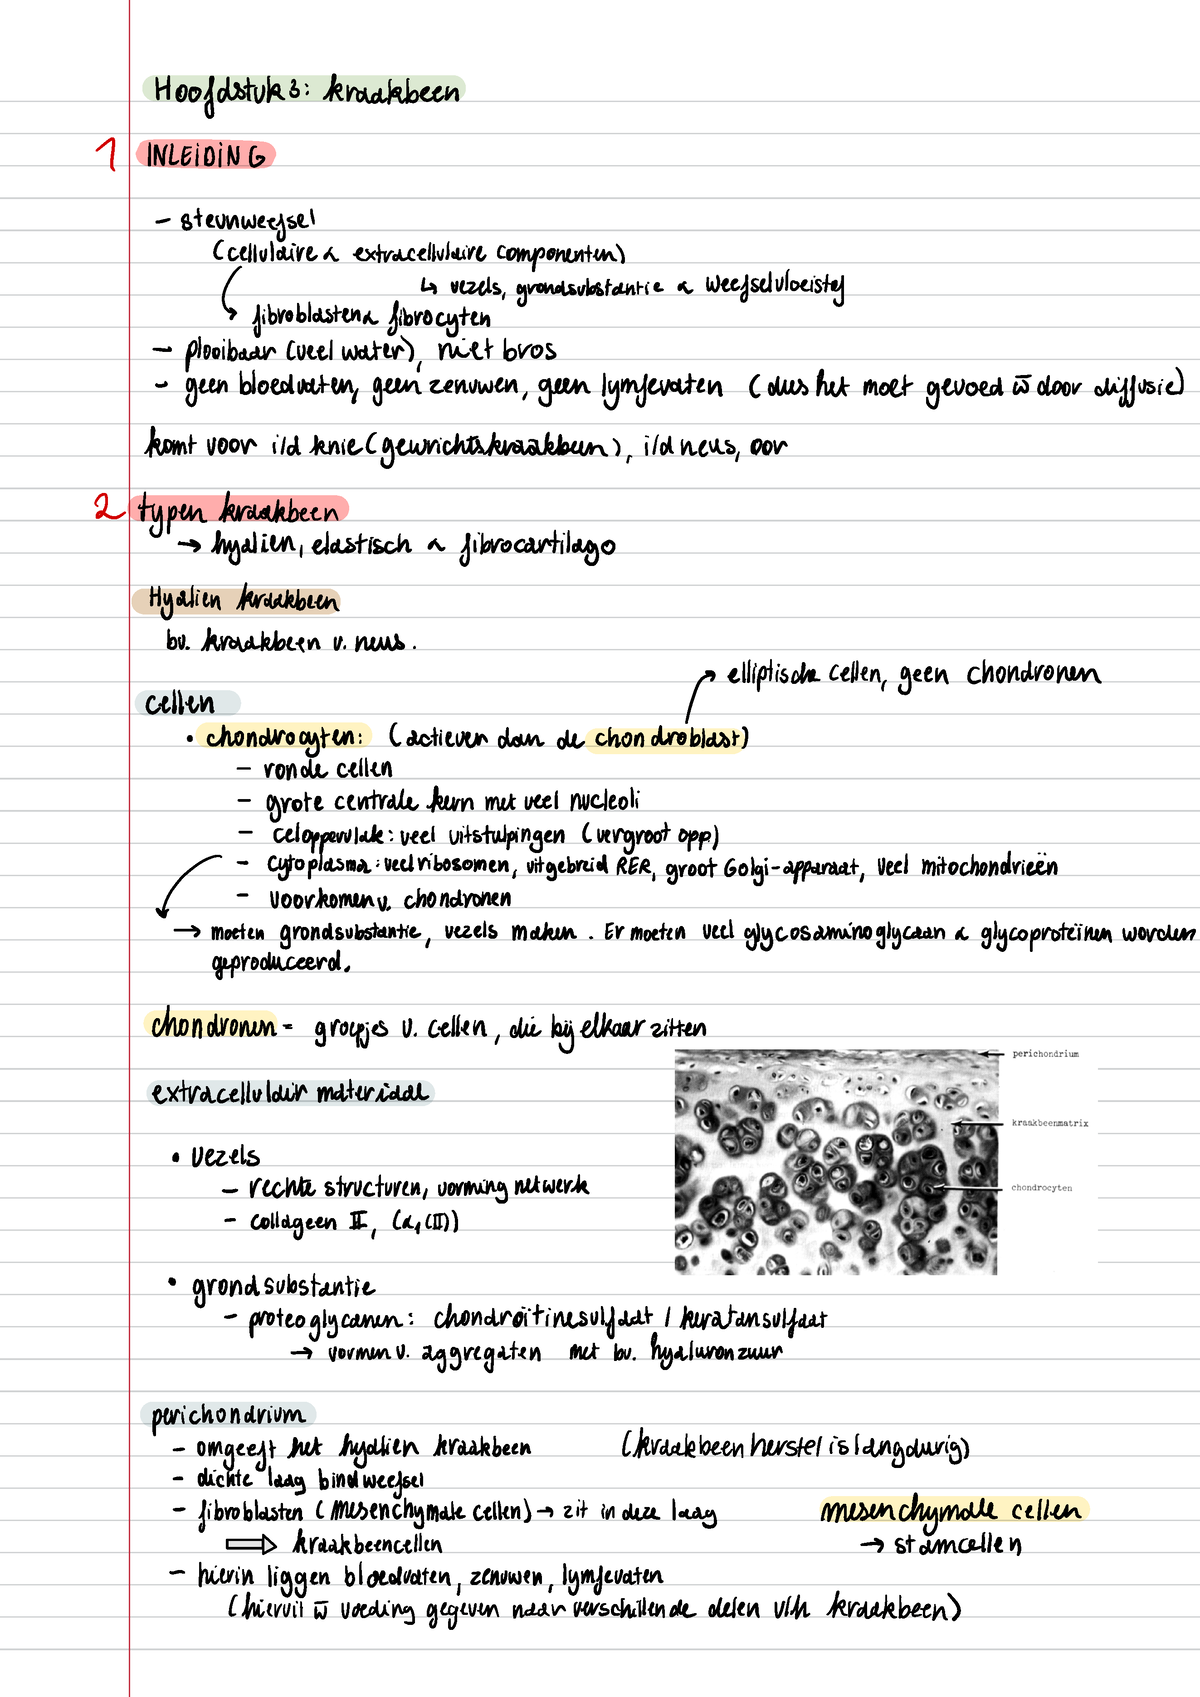 Hoofdstuk 3: kraakbeen
1 INLEIDING
- steunweefsel
(cellulaire & extracellulaire componenten)
↳ vezels, grondsubstantie & weefselvloeistof
fibroblasten & fibrocyten
- plooibaar (veel water), niet bros
- geen bloedvaten, geen zenuwen, geen lymfevaten (dus het moet gevoed w̄ door diffusie)
komt voor i/d knie (gewrichtskraakbeen), i/d neus, oor
2 typen kraakbeen
→ hyalien, elastisch & fibrocartilago
Hyalien kraakbeen
bv. kraakbeen v. neus.
→ elliptische cellen, geen chondronen
cellen
• chondrocyten: (actiever dan de chondroblast)
- ronde cellen
- grote centrale kern met veel nucleoli
- celoppervlak: veel uitstulpingen (vergroot opp)
- cytoplasma: veel ribosomen, uitgebreid RER, groot Golgi-apparaat, veel mitochondrieën
- voorkomen v. chondronen
→ moeten grondsubstantie, vezels maken. Er moeten veel glycosaminoglycaan & glycoproteïnen worden
geproduceerd.
chondronen = groepjes v. cellen, die bij elkaar zitten
perichondrium
extracellulair materiaal
kraakbeenmatrix
• vezels
chondrocyten
- rechte structuren, vorming netwerk
- collageen II, (α₁(II))
• grondsubstantie
- proteoglycanen: chondroïtinesulfaat / keratansulfaat
→ vormen v. aggregaten met bv. hyaluronzuur
perichondrium
- omgeeft het hyalien kraakbeen (kraakbeenherstel is langdurig)
- dichte laag bindweefsel
- fibroblasten (mesenchymale cellen) → zit in deze laag mesenchymale cellen
⇒ kraakbeencellen → stamcellen
- hierin liggen bloedvaten, zenuwen, lymfevaten
(hieruit w̄ voeding gegeven naar verschillende delen v/h kraakbeen)